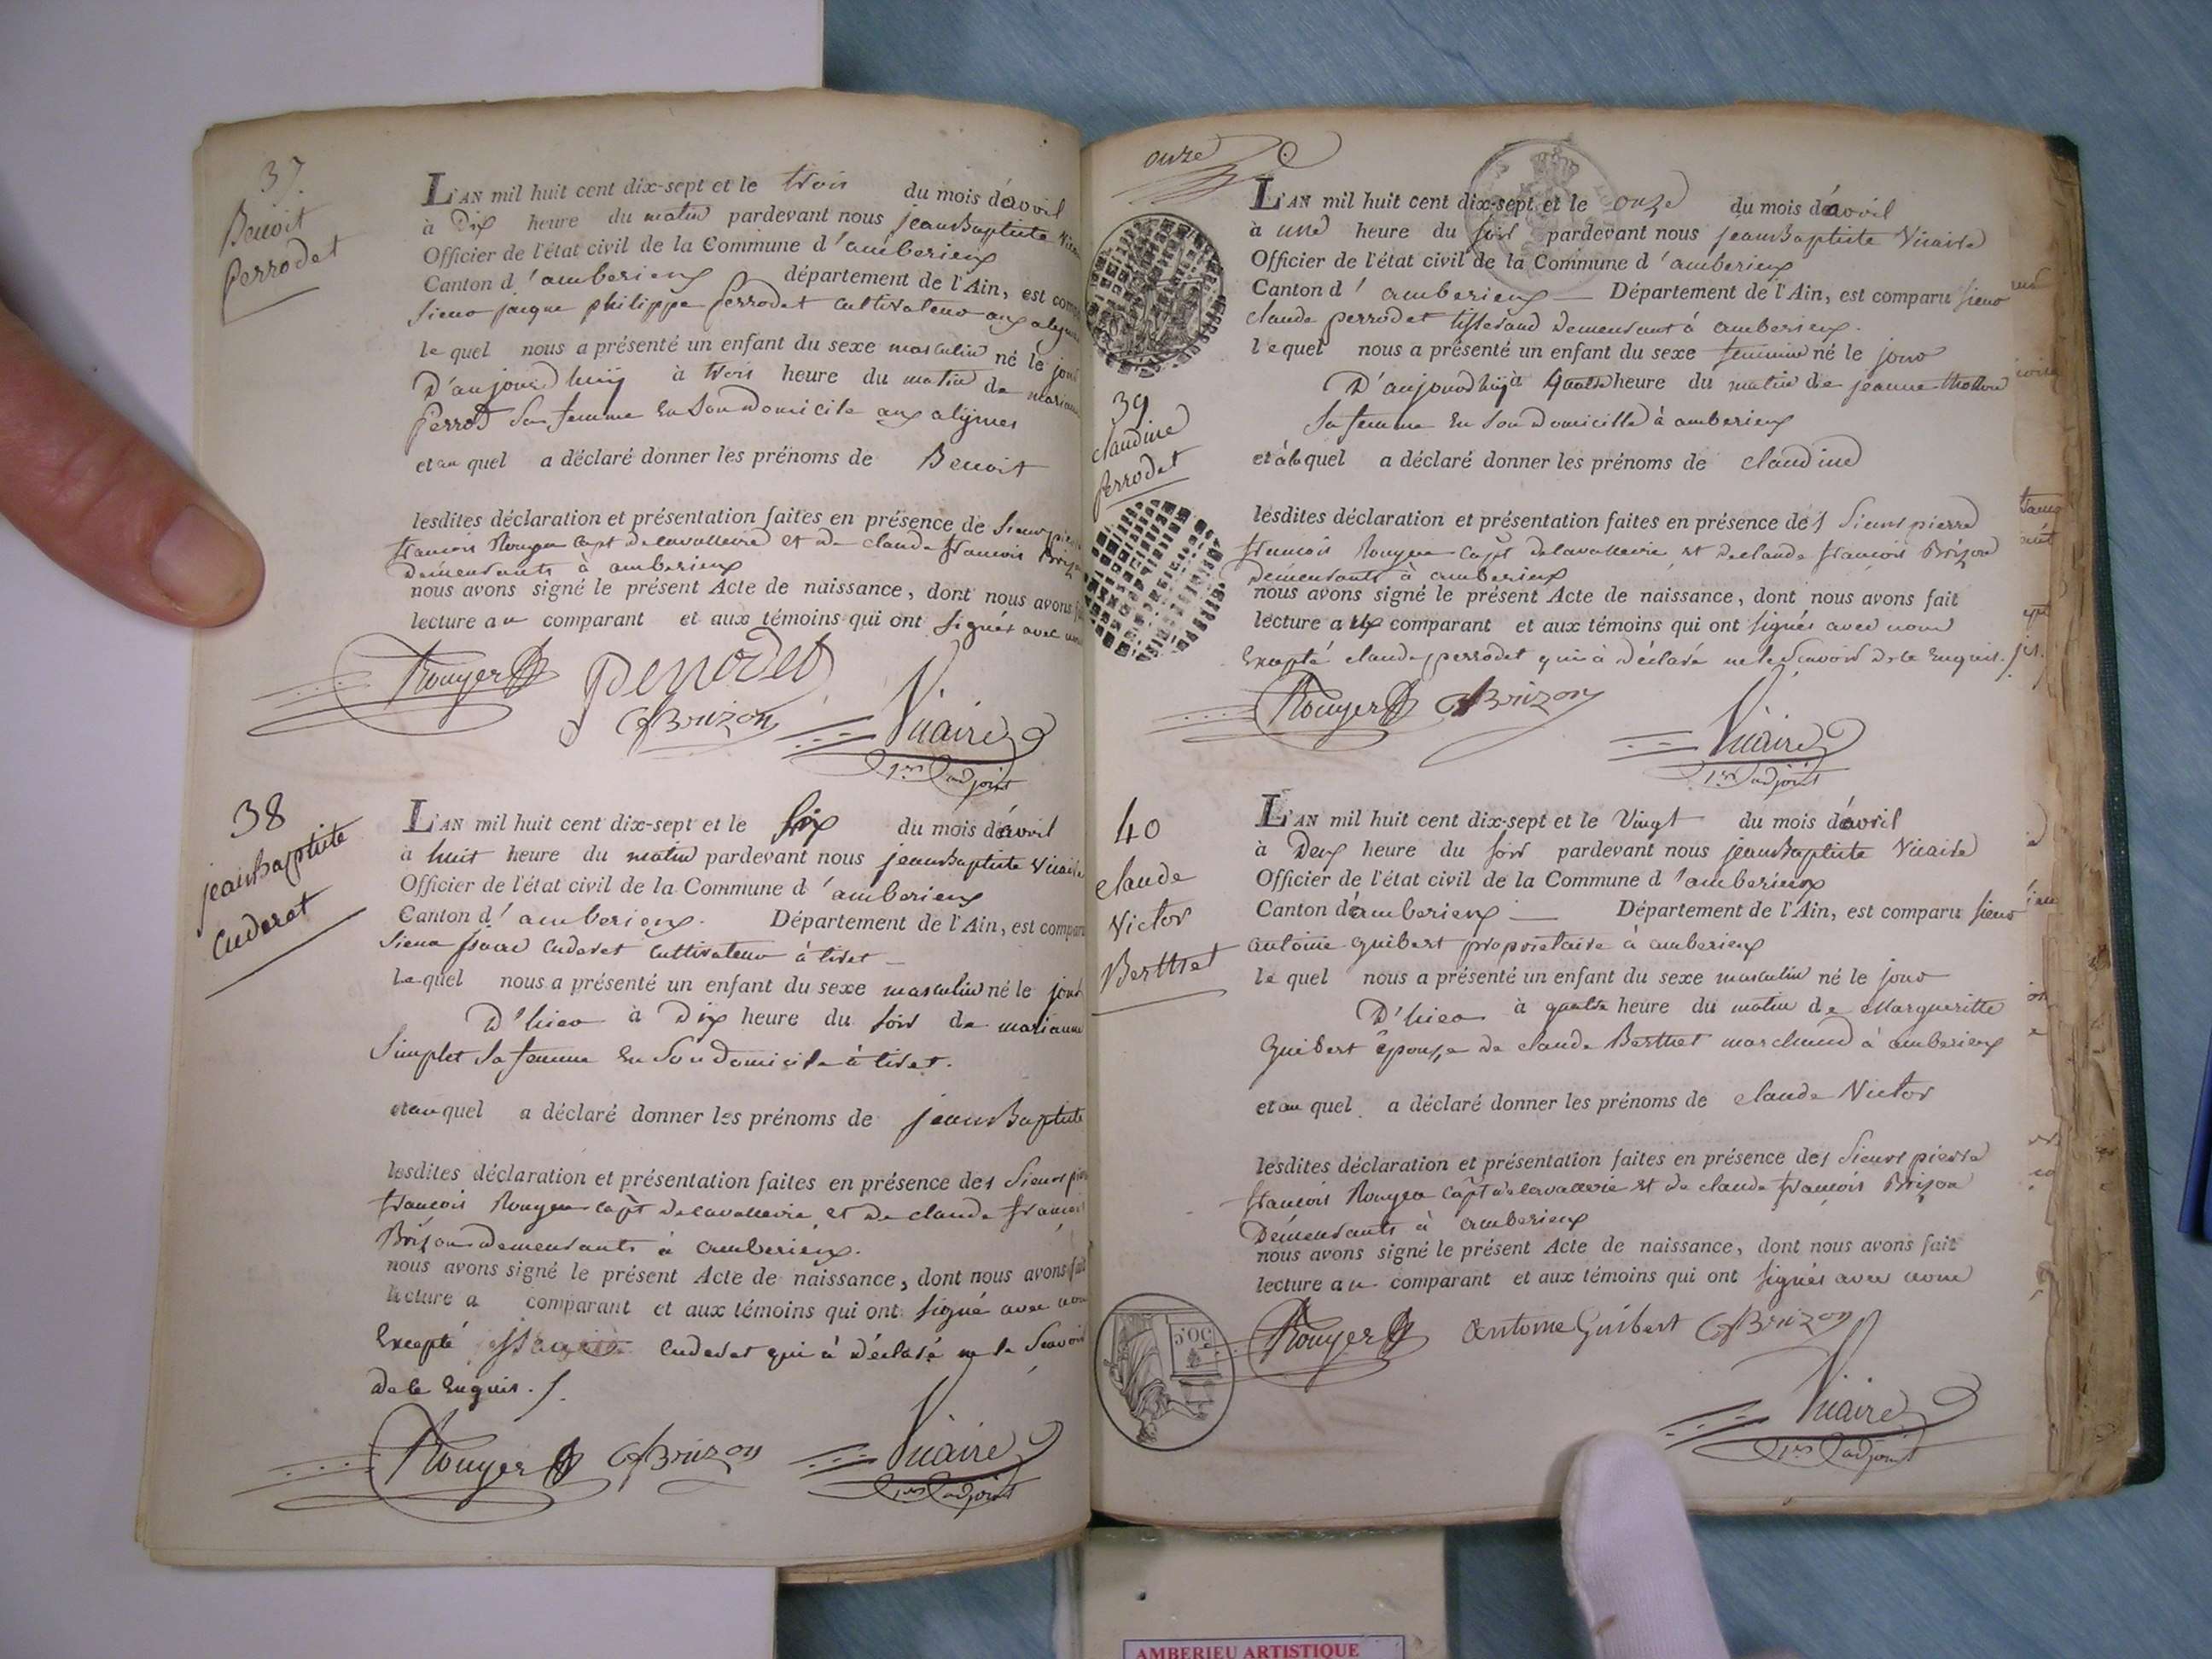 37.
Benoit
perrodet
L'AN mil huit cent dix-sept et le trois du mois d'avril
à Dix heure du matin pardevant nous jean Baptiste
Officier de l'état civil de la Commune d'amberieux
Canton d'amberieux département de l'Ain, est
Sieur jaque philippe perrodet cultivateur aux
le quel nous a présenté un enfant du sexe masculin né le jour
D'aujourd huÿ à trois heure du matin de
perrod Sa femme En Son domicile aux alÿmes
et au quel a déclaré donner les prénoms de Benoit
lesdites déclaration et présentation faites en présence de Sieurs
francois Rouyer capt de cavallerie et de claude francois
Demeurants à amberieux
nous avons signé le présent Acte de naissance, dont nous avons
lecture au comparant et aux témoins qui ont Signés avec
Rouyer perrodet
Brizon Vicaire
1er adjoint
38
jean Baptiste
Cuderet
L'AN mil huit cent dix-sept et le Six du mois d'avril
à huit heure du matin pardevant nous jean Baptiste Vicaire
Officier de l'état civil de la Commune d'amberieux
Canton d'amberieux. Département de l'Ain, est
Sieur Cuderet Cultivateur à tiret
le quel nous a présenté un enfant du sexe masculin né le jour
D'hier à Dix heure du soir de marianne
Simplet Sa femme En Son Domicile à tiret.
et au quel a déclaré donner les prénoms de jean Baptiste
lesdites déclaration et présentation faites en présence des Sieurs
francois Rouyer capt de cavallerie et De claude francois
Brizon Demeurants à amberieux.
nous avons signé le présent Acte de naissance, dont nous avons fait
lecture a comparant et aux témoins qui ont Signé avec
Excepté Cuderet qui à déclaré ne le Scavoir
de ce Enquis.
Rouyer Brizon Vicaire
1er adjoint
onze
L'AN mil huit cent dix-sept et le onze du mois d'avril
à une heure du soir pardevant nous jean Baptiste Vicaire
Officier de l'état civil de la Commune d'amberieux
Canton d'amberieux Département de l'Ain, est comparu Sieur
claude perrodet tisserand Demeurant à amberieux.
lequel nous a présenté un enfant du sexe feminin né le jour
39
claudine
perrodet
D'aujourdhuÿ à quatre heure du matin de jeanne
Sa femme En Son Domicille à amberieux
et à la quel a déclaré donner les prénoms de claudine
lesdites déclaration et présentation faites en présence des Sieurs pierre
francois Rouyer capt de cavallerie et de claude francois Brizon
Demeurants à amberieux
nous avons signé le présent Acte de naissance, dont nous avons fait
lecture au comparant et aux témoins qui ont Signés avec nous
Excepté claude perrodet qui à Déclaré ne le Scavoir de ce Enquis.
Rouyer Brizon
Vicaire
1er adjoint
40
claude
Victor
Berthet
L'AN mil huit cent dix-sept et le Vingt du mois d'avril
à Deux heure du soir pardevant nous jean Baptiste Vicaire
Officier de l'état civil de la Commune d'amberieux
Canton d'amberieux Département de l'Ain, est comparu Sieur
antoine guibert propriétaire à amberieux
le quel nous a présenté un enfant du sexe masculin né le jour
D'hier à quatre heure du matin de Margueritte
Guibert épouse de claude Berthet marchand à amberieux
et au quel a déclaré donner les prénoms de claude Victor
lesdites déclaration et présentation faites en présence des Sieurs pierre
francois Rouyer capt de cavallerie et de claude francois Brizon
Demeurants à amberieux
nous avons signé le présent Acte de naissance, dont nous avons fait
lecture au comparant et aux témoins qui ont Signés avec nous
5OC.
Rouyer antoine Guibert Brizon
Vicaire
1er adjoint
AMBERIEU ARTISTIQUE